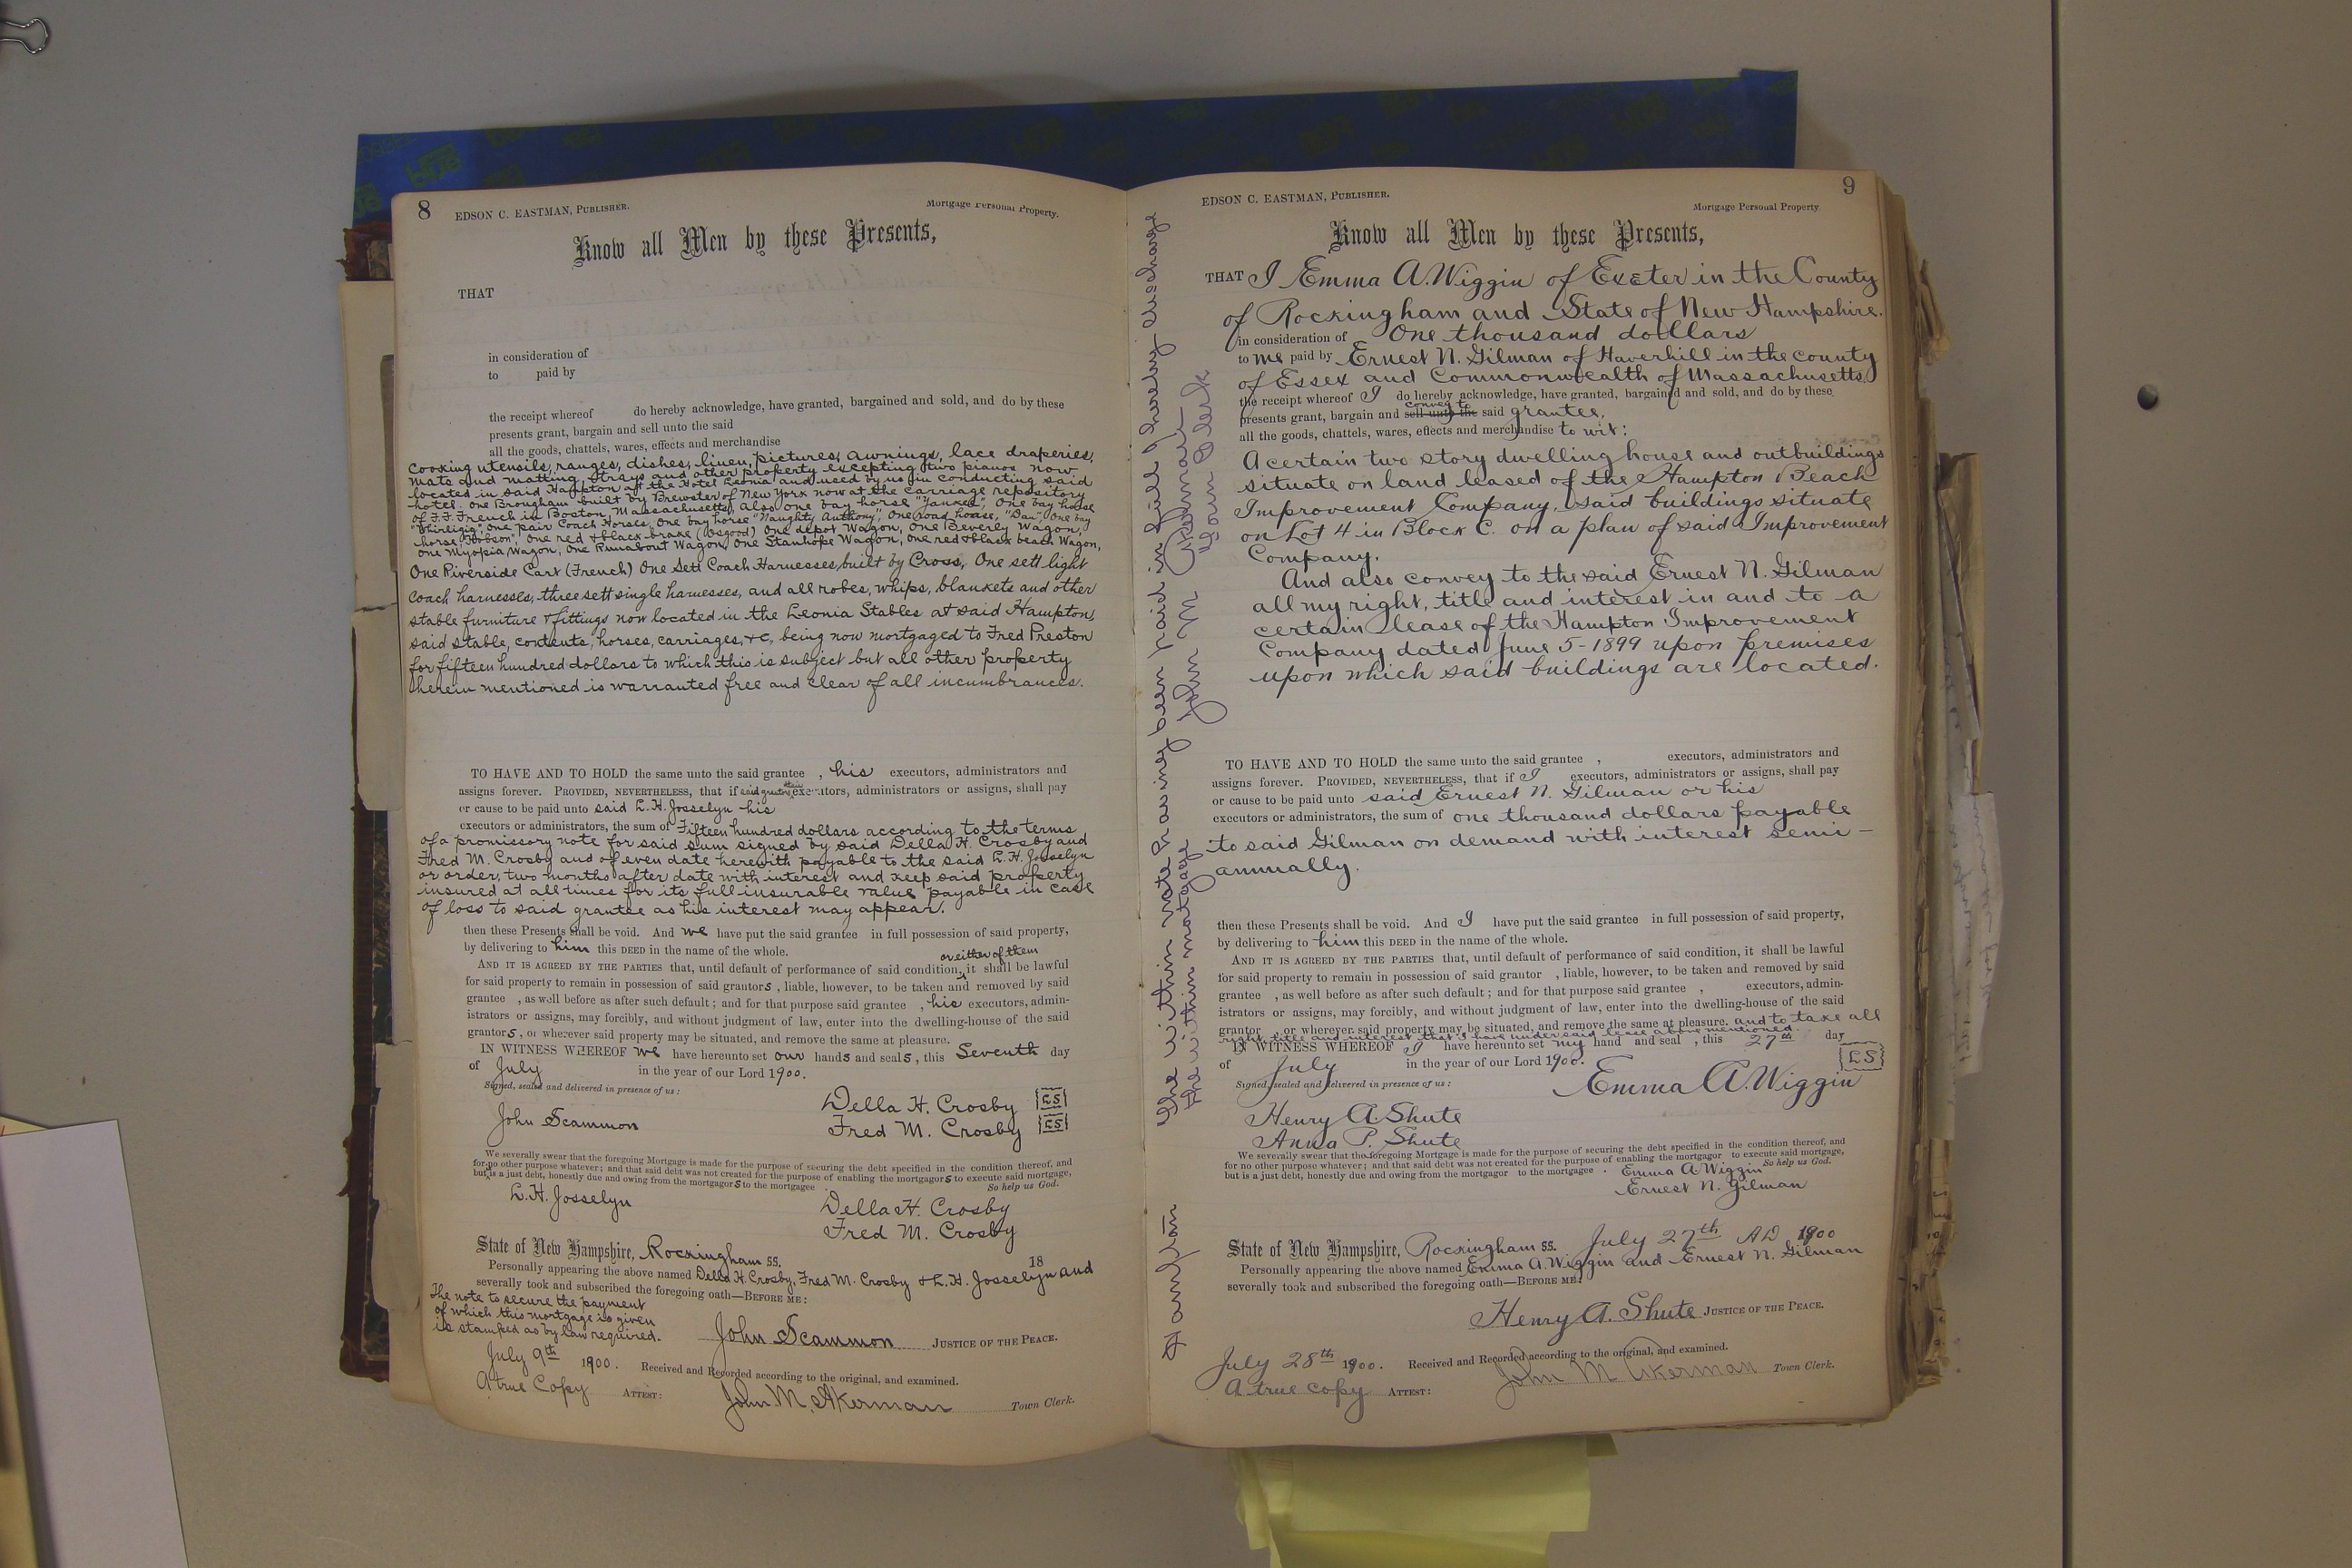 8 EDSON C. EASTMAN, PUBLISHER. Mortgage Personal Property.
Know all Men by these Presents,
THAT
in consideration of
to paid by
the receipt whereof do hereby acknowledge, have granted, bargained and sold, and do by these
presents grant, bargain and sell unto the said
all the goods, chattels, wares, effects and merchandise
cooking utensils, ranges, dishes, linen, pictures, awnings, lace draperies,
mats and matting, trays and other property excepting two pianos now
located in said Hampton at the Hotel Leonia and used by us in conducting said
hotel. One Brougham built by Brewster of New York now at the carriage repository
of F. F. French in Boston, Massachusetts, Also one bay horse "Yankee", One bay horse
"Whirligig", One pair Coach Horses, One bay horse "Naughty Anthony", One road horse, "Dan" One bay
horse "Hobson", One red & black brake (Osgood) One depot Wagon, One Beverly Wagon,
One Myopia Wagon, One Runabout Wagon, One Stanhope Wagon, One red & black beach Wagon,
One Riverside Cart (French) One Sett Coach Harnesses, built by Cross, One sett light
coach harnesses, three sett single harnesses, and all robes, whips, blankets and other
stable furniture & fittings now located in the Leonia Stables at said Hampton,
said stable, contents, horses, carriages, &c, being now mortgaged to Fred Preston
for fifteen hundred dollars to which this is subject but all other property
herein mentioned is warranted free and clear of all incumbrances.
TO HAVE AND TO HOLD the same unto the said grantee , his executors, administrators and
assigns forever. PROVIDED, NEVERTHELESS, that if said grantors their executors, administrators or assigns, shall pay
or cause to be paid unto said L. H. Josselyn his
executors or administrators, the sum of Fifteen hundred dollars according to the terms
of a promissory note for said sum signed by said Della H. Crosby and
Fred M. Crosby and of even date herewith payable to the said L. H. Josselyn
or order, two months after date with interest and keep said property
insured at all times for its full insurable value payable in case
of loss to said grantee as his interest may appear.
then these Presents shall be void. And we have put the said grantee in full possession of said property,
by delivering to him this DEED in the name of the whole.
or either of them
AND IT IS AGREED BY THE PARTIES that, until default of performance of said condition, it shall be lawful
for said property to remain in possession of said grantors, liable, however, to be taken and removed by said
grantee , as well before as after such default; and for that purpose said grantee , his executors, admin-
istrators or assigns, may forcibly, and without judgment of law, enter into the dwelling-house of the said
grantors, or wherever said property may be situated, and remove the same at pleasure.
IN WITNESS WHEREOF we have hereunto set our hands and seals, this Seventh day
of July in the year of our Lord 1900.
Signed, sealed and delivered in presence of us:
Della H. Crosby [LS]
John Scammon Fred M. Crosby [LS]
We severally swear that the foregoing Mortgage is made for the purpose of securing the debt specified in the condition thereof, and
for no other purpose whatever; and that said debt was not created for the purpose of enabling the mortgagors to execute said mortgage,
but is a just debt, honestly due and owing from the mortgagors to the mortgagee . So help us God.
L. H. Josselyn Della H. Crosby
Fred M. Crosby
State of New Hampshire, Rockingham ss. 18
Personally appearing the above named Della H. Crosby, Fred M. Crosby & L. H. Josselyn and
severally took and subscribed the foregoing oath—BEFORE ME:
The note to secure the payment
of which this mortgage is given
is stamped as by law required.
John Scammon JUSTICE OF THE PEACE.
July 9th 1900. Received and Recorded according to the original, and examined.
A true Copy ATTEST: John M. Akerman Town Clerk.
The within note having been paid in full I hereby discharge
the within mortgage John M Akerman
Town Clerk
Hampton
EDSON C. EASTMAN, PUBLISHER. 9
Mortgage Personal Property
Know all Men by these Presents,
THAT I Emma A. Wiggin of Exeter in the County
of Rockingham and State of New Hampshire.
in consideration of One thousand dollars
to me paid by Ernest N. Gilman of Haverhill in the county
of Essex and Commonwealth of Massachusetts,
the receipt whereof I do hereby acknowledge, have granted, bargained and sold, and do by these
convey to
presents grant, bargain and sell unto the said grantee,
all the goods, chattels, wares, effects and merchandise to wit:
A certain two story dwelling house and outbuildings
situate on land leased of the Hampton Beach
Improvement Company, said buildings situate
on Lot 4 in Block C. on a plan of said Improvement
Company.
And also convey to the said Ernest N. Gilman
all my right, title and interest in and to a
certain lease of the Hampton Improvement
Company dated June 5-1899 upon premises
upon which said buildings are located.
TO HAVE AND TO HOLD the same unto the said grantee , executors, administrators and
assigns forever. PROVIDED, NEVERTHELESS, that if I executors, administrators or assigns, shall pay
or cause to be paid unto said Ernest N. Gilman or his
executors or administrators, the sum of one thousand dollars payable
to said Gilman on demand with interest semi-
annually.
then these Presents shall be void. And I have put the said grantee in full possession of said property,
by delivering to him this DEED in the name of the whole.
AND IT IS AGREED BY THE PARTIES that, until default of performance of said condition, it shall be lawful
for said property to remain in possession of said grantor , liable, however, to be taken and removed by said
grantee , as well before as after such default; and for that purpose said grantee , executors, admin-
istrators or assigns, may forcibly, and without judgment of law, enter into the dwelling-house of the said
grantor , or wherever said property may be situated, and remove the same at pleasure. and to take all
right, title and interest that I have under said lease above mentioned.
IN WITNESS WHEREOF I have hereunto set my hand and seal , this 27th day
of July in the year of our Lord 1900. [LS]
Signed, sealed and delivered in presence of us: Emma A. Wiggin
Henry A. Shute
Anna P. Shute
We severally swear that the foregoing Mortgage is made for the purpose of securing the debt specified in the condition thereof, and
for no other purpose whatever; and that said debt was not created for the purpose of enabling the mortgagor to execute said mortgage,
but is a just debt, honestly due and owing from the mortgagor to the mortgagee . Emma A Wiggin So help us God.
Ernest N. Gilman
State of New Hampshire, Rockingham ss. July 27th AD 1900
Personally appearing the above named Emma A. Wiggin and Ernest N. Gilman
severally took and subscribed the foregoing oath—BEFORE ME:
Henry A. Shute JUSTICE OF THE PEACE.
July 28th 1900. Received and Recorded according to the original, and examined.
A true copy ATTEST: John M Akerman Town Clerk.